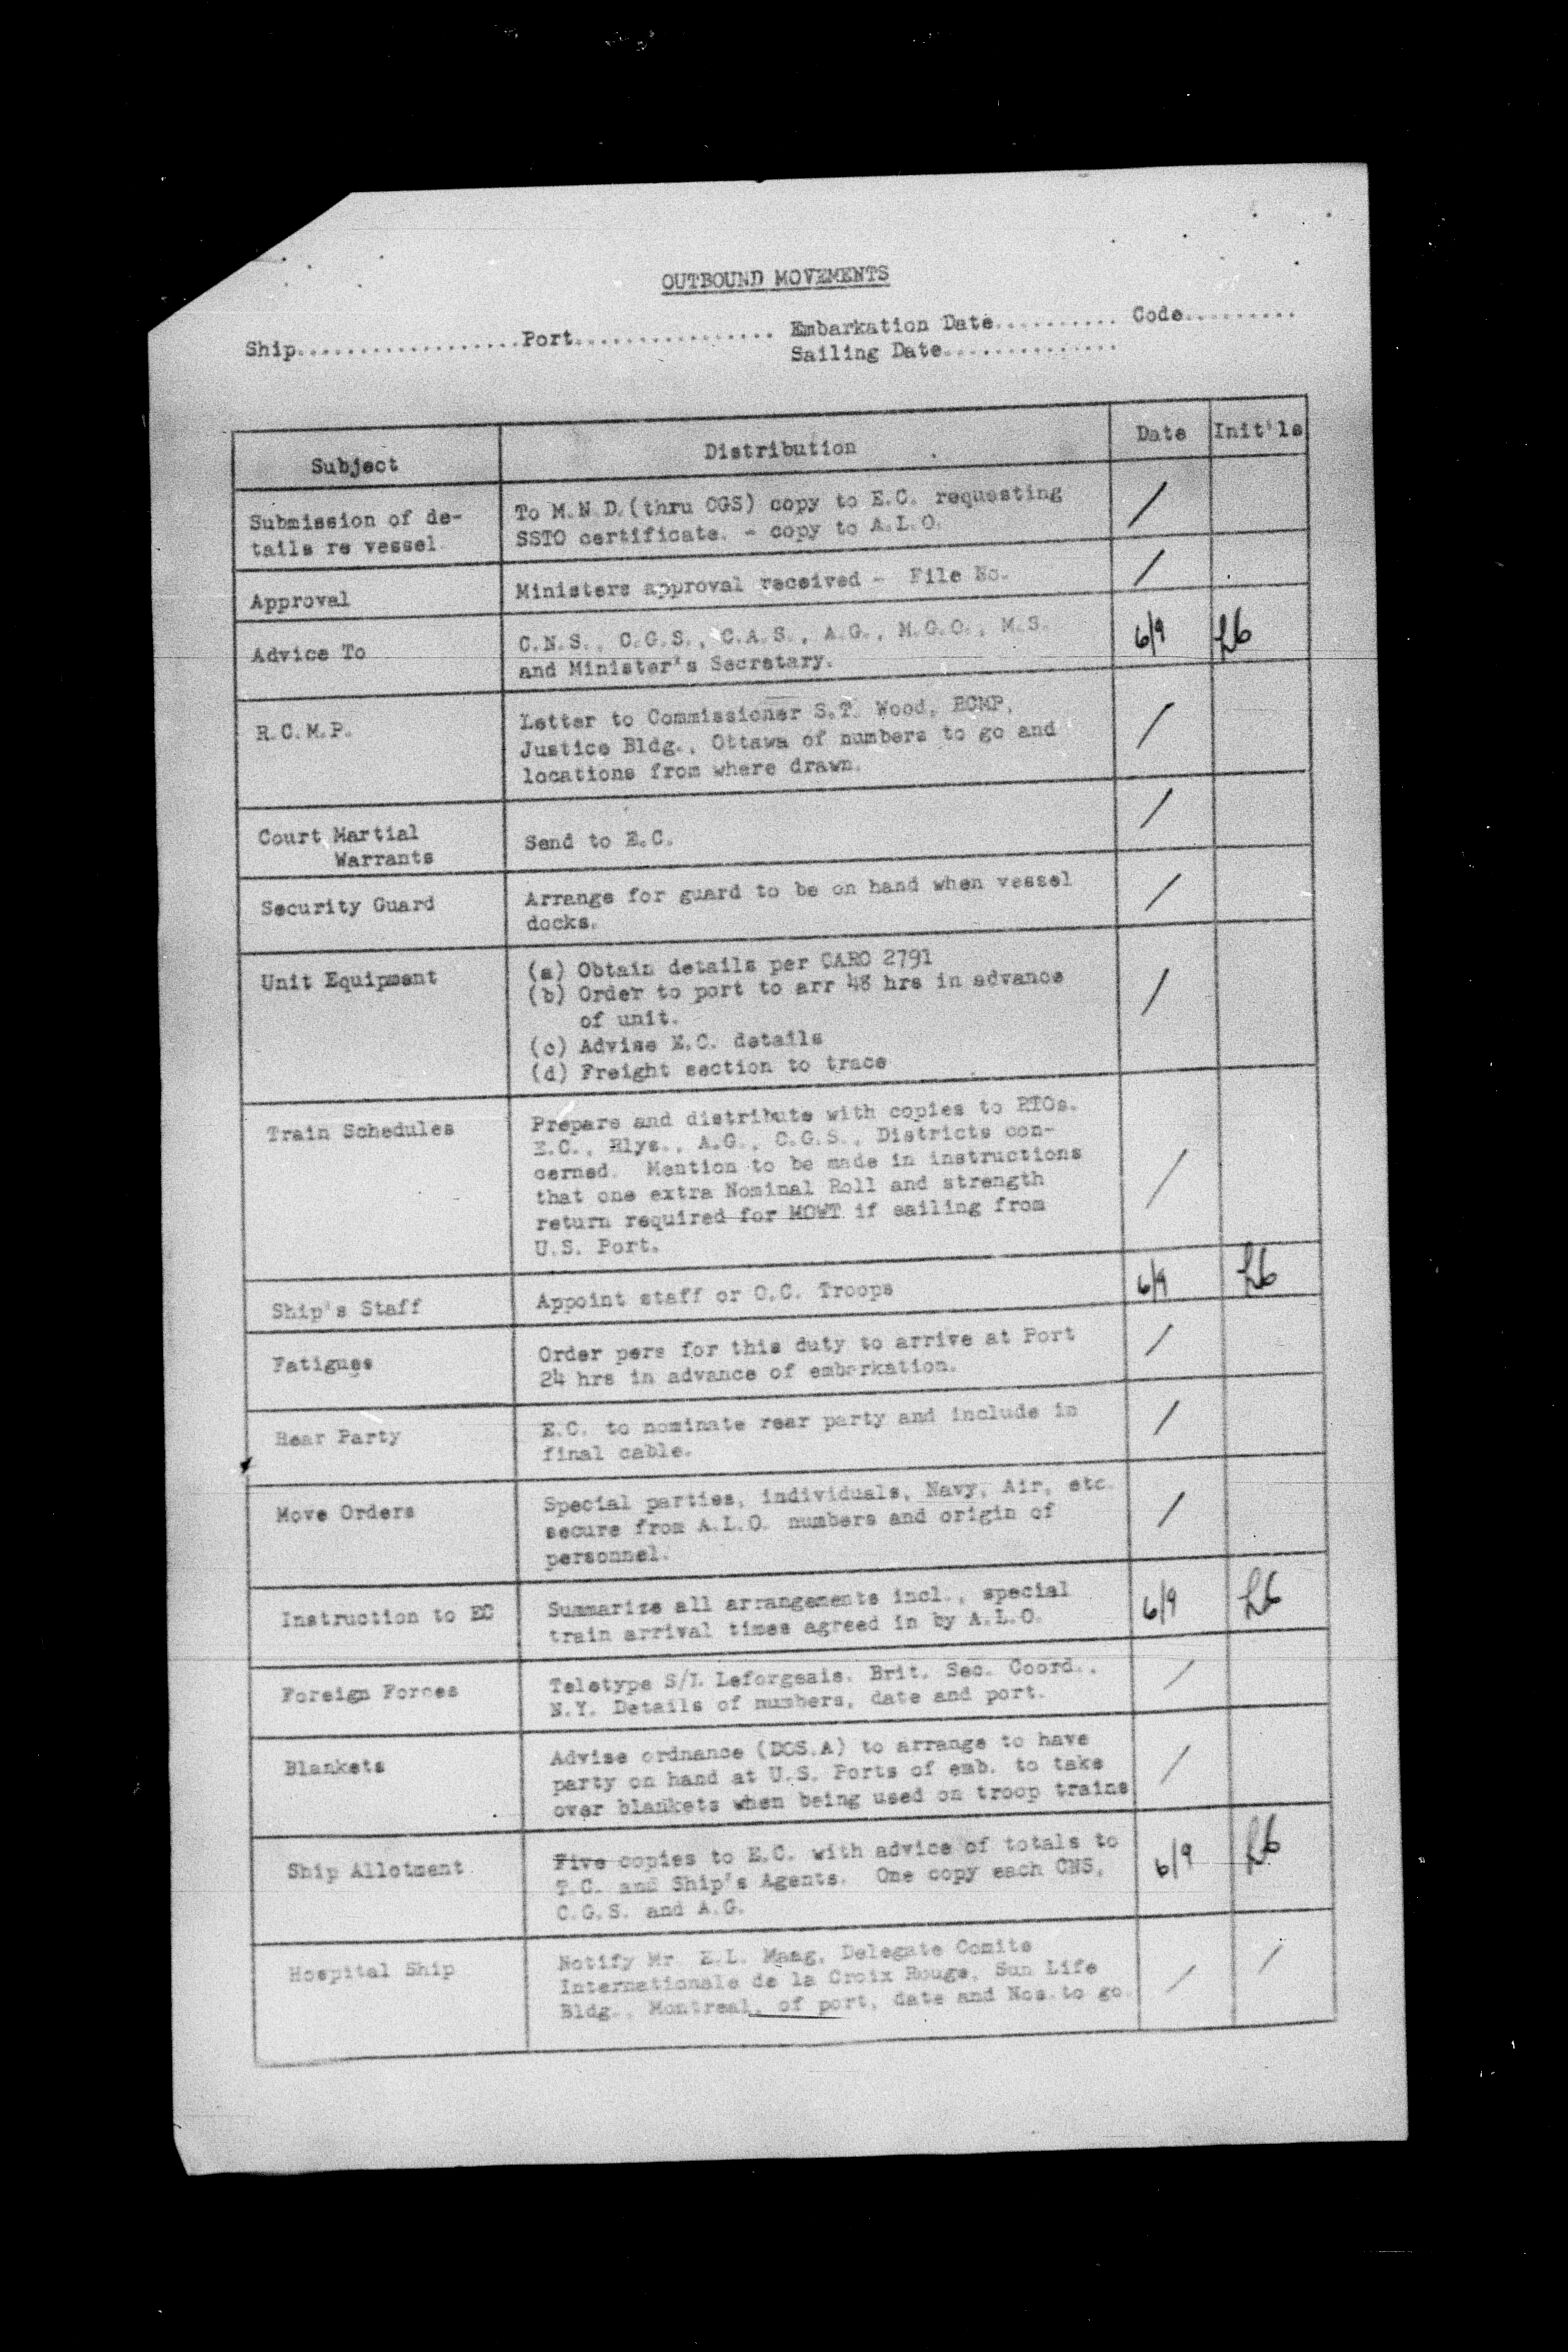 OUTBOUND MOVEMENTS
Ship..................Port................ Embarkation Date.......... Code.........
Sailing Date..............
Subject Distribution Date Init'ls
Submission of de-
tails re vessel.
To M.N.D.(thru CGS) copy to E.C. requesting
SSTO certificate. - copy to A.L.O.
/
Approval
Ministers approval received - File No.
/
Advice To
C.N.S., C.G.S., C.A.S., A.G., M.G.O., M.S.
and Minister's Secretary.
6/9
R.C.M.P.
Letter to Commissioner S.T. Wood, RCMP,
Justice Bldg., Ottawa of numbers to go and
locations from where drawn.
/
Court Martial
Warrants
Send to E.C.
/
Security Guard
Arrange for guard to be on hand when vessel
docks.
/
Unit Equipment
(a) Obtain details per CARO 2791
(b) Order to port to arr 48 hrs in advance
of unit.
(c) Advise E.C. details
(d) Freight section to trace
/
Train Schedules
Prepare and distribute with copies to RTOs.
E.C., Rlys., A.G., C.G.S., Districts con-
cerned. Mention to be made in instructions
that one extra Nominal Roll and strength
return required for MOWT if sailing from
U.S. Port.
/
Ship's Staff
Appoint staff or O.C. Troops
6/9
Fatigues
Order pers for this duty to arrive at Port
24 hrs in advance of embarkation.
/
Rear Party
E.C. to nominate rear party and include in
final cable.
/
Move Orders
Special parties, individuals, Navy, Air, etc.
secure from A.L.O. numbers and origin of
personnel.
/
Instruction to EC
Summarize all arrangements incl., special
train arrival times agreed in by A.L.O.
6/9
Foreign Forces
Teletype S/L Leforgeais. Brit. Sec. Coord..
N.Y. Details of numbers, date and port.
/
Blankets
Advise ordnance (DOS.A) to arrange to have
party on hand at U.S. Ports of emb. to take
over blankets when being used on troop trains
/
Ship Allotment
Five copies to E.C. with advice of totals to
T.C. and Ship's Agents. One copy each CNS,
C.G.S. and A.G.
6/9
Hospital Ship
Notify Mr E.L. Maag, Delegate Comite
Internationale de la Croix Rouge, Sun Life
Bldg., Montreal, of port, date and Nos.to go.
/ /